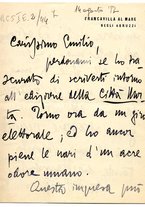 14 agosto 97
FRANCAVILLA AL MARE
NEGLI ABRUZZI
Carissimo Emilio,
perdonami se ho tra-
scurato di scriverti intorno
all'edizione della Città Mor-
ta. Torno ora da un giro
elettorale; ed ho ancor
piene le nari d'un acre
odore umano.
Questa impresa può